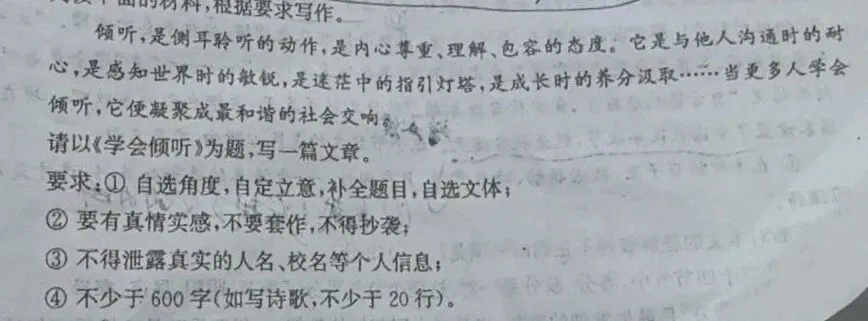 面的材料,根据要求写作。
倾听,是侧耳聆听的动作,是内心尊重、理解、包容的态度。它是与他人沟通时的耐
心,是感知世界时的敏锐,是迷茫中的指引灯塔,是成长时的养分汲取……当更多人学会
倾听,它便凝聚成最和谐的社会交响。
请以《学会倾听》为题,写一篇文章。
要求:① 自选角度,自定立意,补全题目,自选文体;
② 要有真情实感,不要套作,不得抄袭;
③ 不得泄露真实的人名、校名等个人信息;
④ 不少于 600 字(如写诗歌,不少于 20 行)。